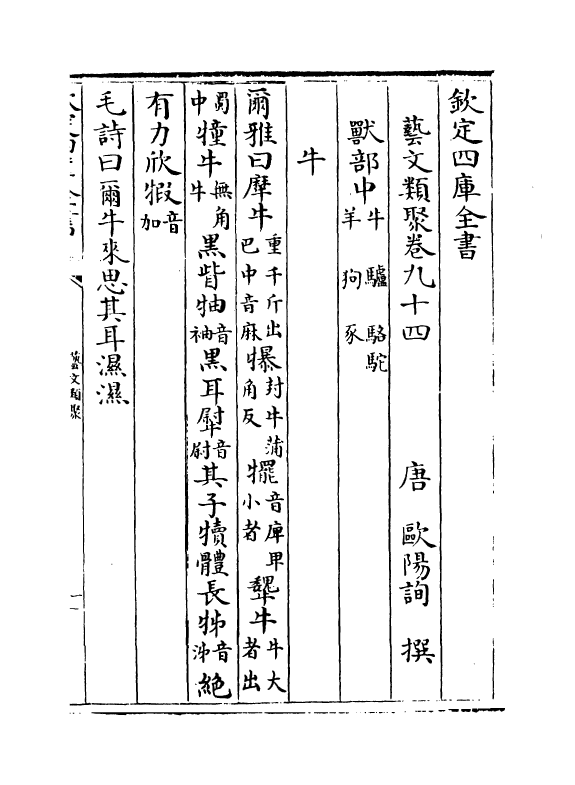 欽定四庫全書
藝文類聚卷九十四
唐 歐陽詢 撰
獸部中牛 驢 駱駝 羊 狗 豕
牛
爾雅曰犘牛重千斤出巴中音麻犦封牛蒲角反犤音庳甲小者犩牛牛大者出
蜀中犝牛無角牛黑眥牰音袖黑耳犚音尉其子犢體長㸬音沛絶
有力欣犌音加
毛詩曰爾牛來思其耳濕濕
藝文類聚
一